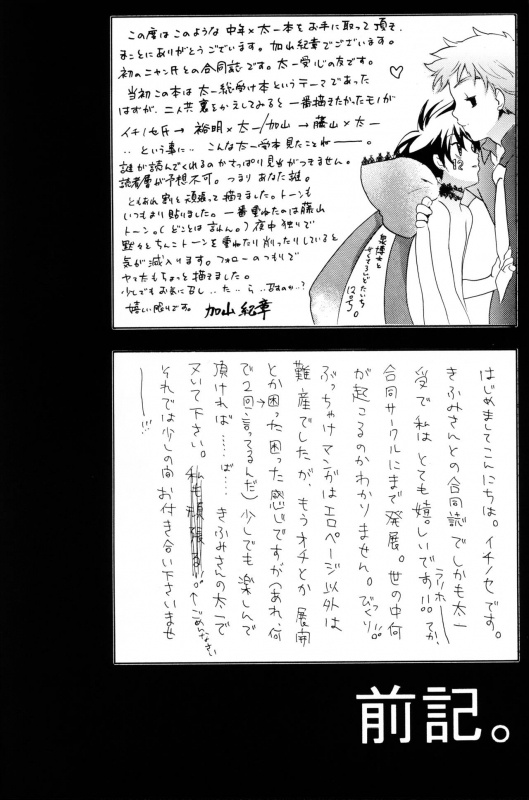 この度はこのような 中年×太一本を お手に取って頂き
まことにありがとうございます。加山紀章でございます。
初のニャン氏との合同誌です。太一受心の友です。
当初この本は 太一総受け本というテーマであった
はずが、二人共裏をかえしてみると 一番描きたかったモノが
イチノセ氏→裕明×太一/加山→藤山×太一
‥という事に‥ こんな太一受本見たことねーー。
誰が読んでくれるのか さっぱり見当がつきません。
読者層が予想不可。つまり あなた誰。
ともあれ 割と頑張って描きました。トーンも
いつもより貼りました。一番重ねたのは藤山
トーン。(どことは言わん。)夜中独りで
黙々とちんこトーンを重ねたり削ったりしていると
気が滅入ります。フォローのつもりで
ヤマ太もちょっと描きました。
少しでもお気に召し‥た‥ら‥召すのか‥?
嬉しい限りです。 加山紀章
12
12号。
はじめましてこんにちは。イチノセです。
きふみさんとの合同誌でしかも太一
受で私はとても嬉しいです!!てか、
合同サークルにまで発展。世の中何
が起こるのかわかりません。びっくり!!
ぶっちゃけマンガはエロページ以外は
難産でしたが、もうオチとか展開
とか困った困った感じですが(あれ、何
で2回言ってるんだ)少しでも楽しんで
頂ければ……ば…… きふみさんの太一で
又いて下さい。私も頑張る!!←ごめんなさい
それでは少しの間お付き合い下さいませ
ーー!!!
前記。